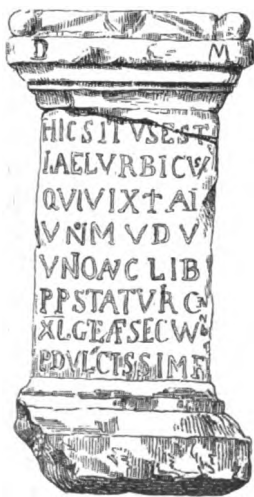 D M
HICSITUSEST
I.AELVRBICVS
QVIVIXT AI
VNMVDV
VNOAVCLIB
PPSTATVRC
XLGEÆSECVN
PDVLCISSIME